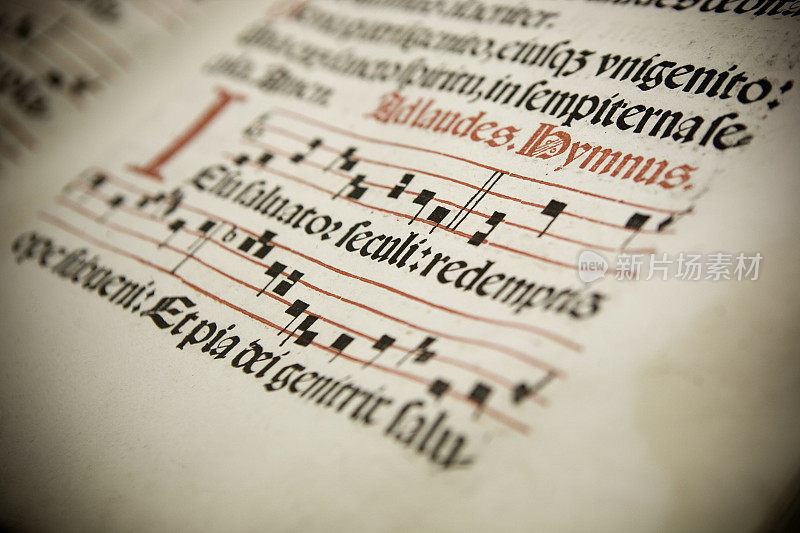 genito, eiusqꝫ vnigenito:
sancto spiritu, in sempiterna se-
cula. Amen.
Ad laudes. Hymnus.
IEsu saluator seculi: redemptis
ope subueni: Et pia dei genitrix salu
new 新片场素材